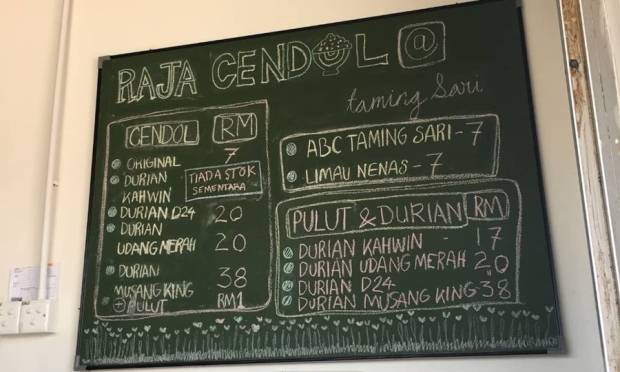 RAJA CENDOL @
taming Sari
CENDOL RM
ORIGINAL 7
DURIAN KAHWIN TIADA STOK SEMENTARA
DURIAN D24 20
DURIAN UDANG MERAH 20
DURIAN MUSANG KING 38
+ PULUT RM1
ABC TAMING SARI - 7
LIMAU NENAS - 7
PULUT & DURIAN RM
DURIAN KAHWIN - 17
DURIAN UDANG MERAH 20
DURIAN D24
DURIAN MUSANG KING 38